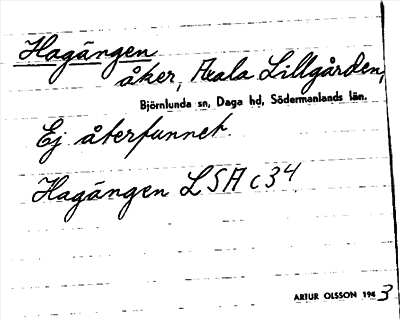 Hagängen
åker, Axala Lillgården,
Björnlunda sn, Daga hd, Södermanlands län.
Ej återfunnet.
Hagängen LSA C34
ARTUR OLSSON 1943